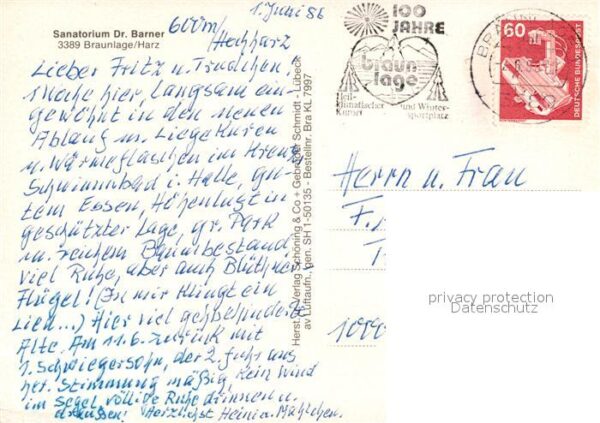 Sanatorium Dr. Barner
3389 Braunlage/Harz
600m/
Hochharz
1. Juni 86
Lieber Fritz u. Trudchen!
1 Woche hier, langsam ein-
gewöhnt in den neuen
Ablauf m. Liegekuren
u. Wärmeflaschen im Kreuz
Schwimmbad i. Halle, gu-
tem Essen, Höhenluft in
geschützter Lage, gr. Park
m. reichem Baumbestand,
viel Ruhe, aber auch Blüthner
Flügel! (In mir klingt ein
Lied...) Hier viel gehbehinderte
Alte. Am 11.6. zurück mit
1. Schwiegersohn, der 2. fuhr uns
her. Stimmung mäßig, kein Wind
im Segel, völlige Ruhe drinnen u.
draußen! Herzlichst Heini u.
Herst. u. Verlag Schöning & Co + Gebrüder Schmidt - Lübeck
av Luftaufn., gen. SH 1-50135 - Bestellnr. Bra KL 7997
100
JAHRE
braun
lage
Heil-
klimatischer
Kurort
und Winter-
sportplatz
60
DEUTSCHE BUNDESPOST
Herrn u. Frau
F.
T
1000
privacy protection
Datenschutz